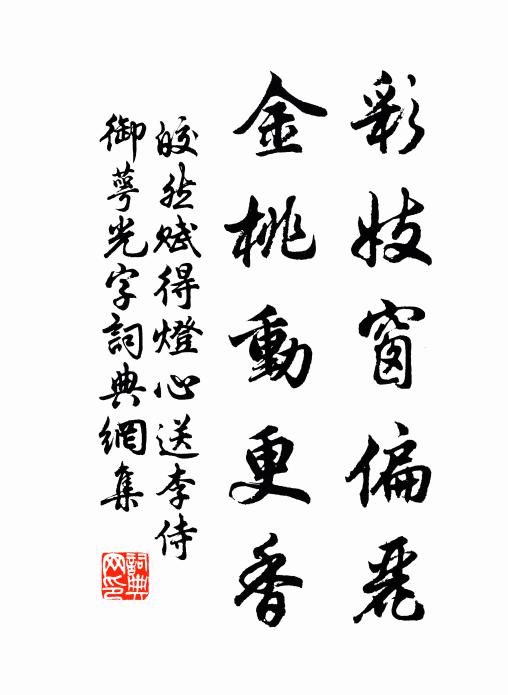 彩妓窗偏麗
金桃動更香
皎然賦得燈心送李侍
御萼光字詞典網集
詞典網印